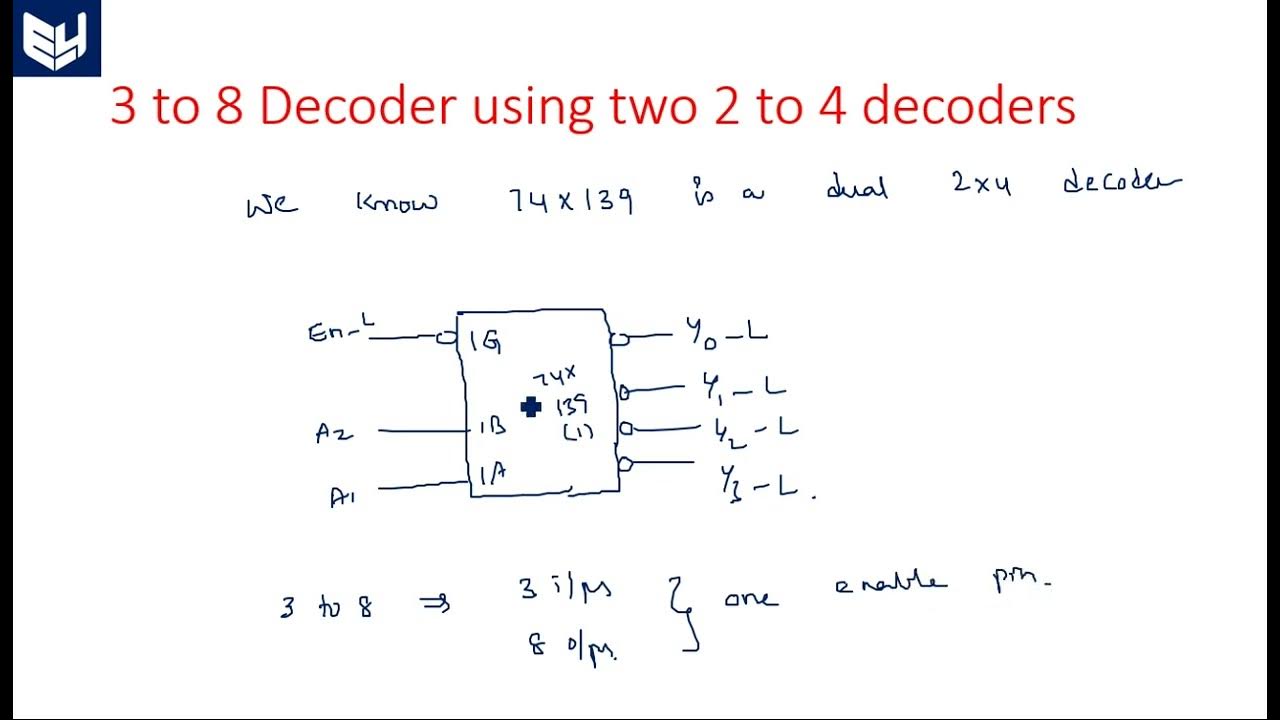 E4
3 to 8 Decoder using two 2 to 4 decoders
We know 74x139 is a dual 2x4 decoder
En-L 1G Y0-L
74x Y1-L
139
A2 1B (1) Y2-L
A1 1A Y3-L.
3 to 8 ⇒ 3 i/ps } one enable pin.
8 o/ps.